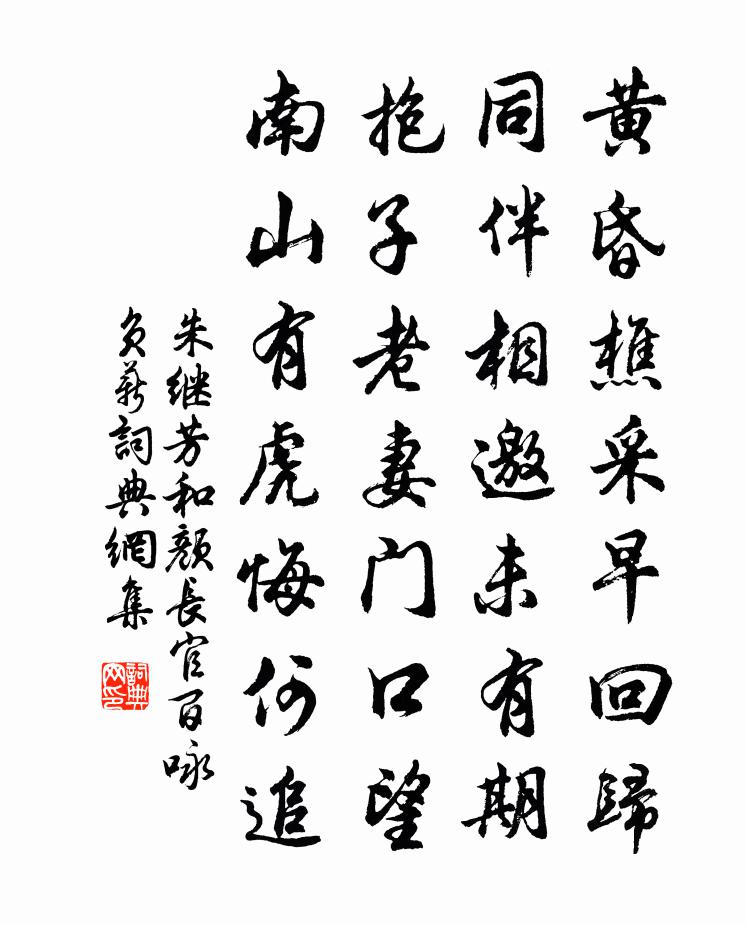 黄昏樵采早回歸
同伴相邀未有期
抱子老妻門口望
南山有虎悔何追
朱继芳和颜長官百咏
負薪詞典網集
詞典网印